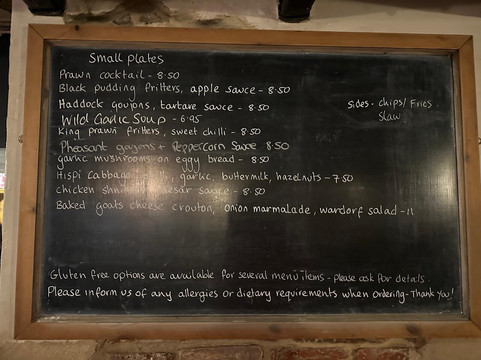 Small plates
Prawn cocktail - 8.50
Black pudding fritters, apple sauce - 8.50
Haddock goujons, tartare sauce - 8.50
Sides - chips/Fries
slaw
Wild Garlic Soup - 6.95
King prawn fritters, sweet chilli - 8.50
Pheasant goujons + Peppercorn Sauce 8.50
garlic mushrooms on eggy bread - 8.50
Hispi Cabbage, garlic, buttermilk, hazelnuts - 7.50
chicken sauce - 8.50
Baked goats cheese crouton, onion marmalade, waldorf salad - 11
Gluten free options are available for several menu items - please ask for details.
Please inform us of any allergies or dietary requirements when ordering - Thank you!